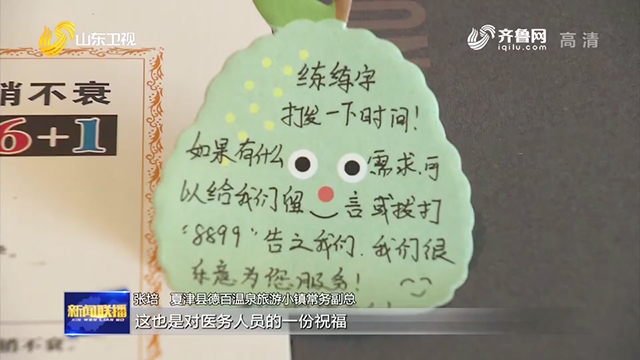 山东卫视
齐鲁网
iqilu.com
高清
销不衰
6+1
练练字
打发一下时间！
如果有什么需求，可
以给我们留言或拨打
“8899”告之我们，我们很
乐意为您服务！
新闻联播
张培 夏津县德百温泉旅游小镇常务副总
这也是对医务人员的一份祝福